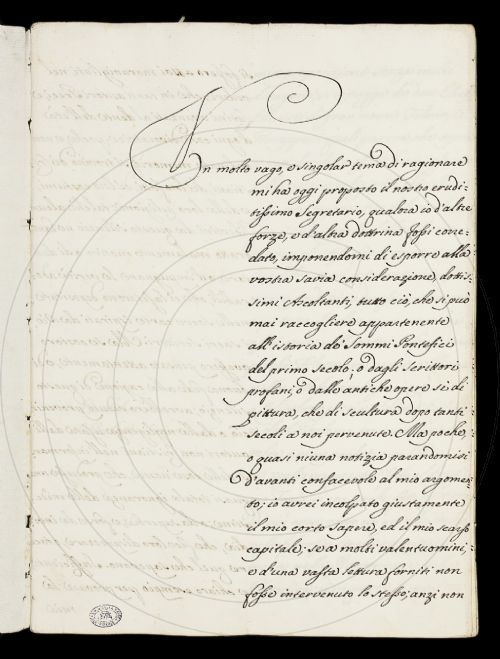 Un molto vago, e singolar tema di ragionare
mi ha oggi proposto il nostro erudi-
tissimo Segretario, qualora io d'altre
forze, e d'altra dottrina fossi corre-
dato, imponendomi di esporre alla
vostra savia considerazione, dottis-
simi Ascoltanti, tutto ciò, che si può
mai raccogliere appartenente
all'istoria de' Sommi Pontefici
del primo secolo, o dagli Scrittori
profani, o dalle antiche opere sì di
pittura, che di scultura dopo tanti
secoli a noi pervenute. Ma poche,
o quasi niuna notizia parandomisi
d'avanti confacevole al mio argomen-
to; io avrei incolpato giustamente
il mio corto sapere, ed il mio scarso
capitale; se a molti valentuomini,
e d'una vasta lettura forniti non
fosse intervenuto lo stesso; anzi non